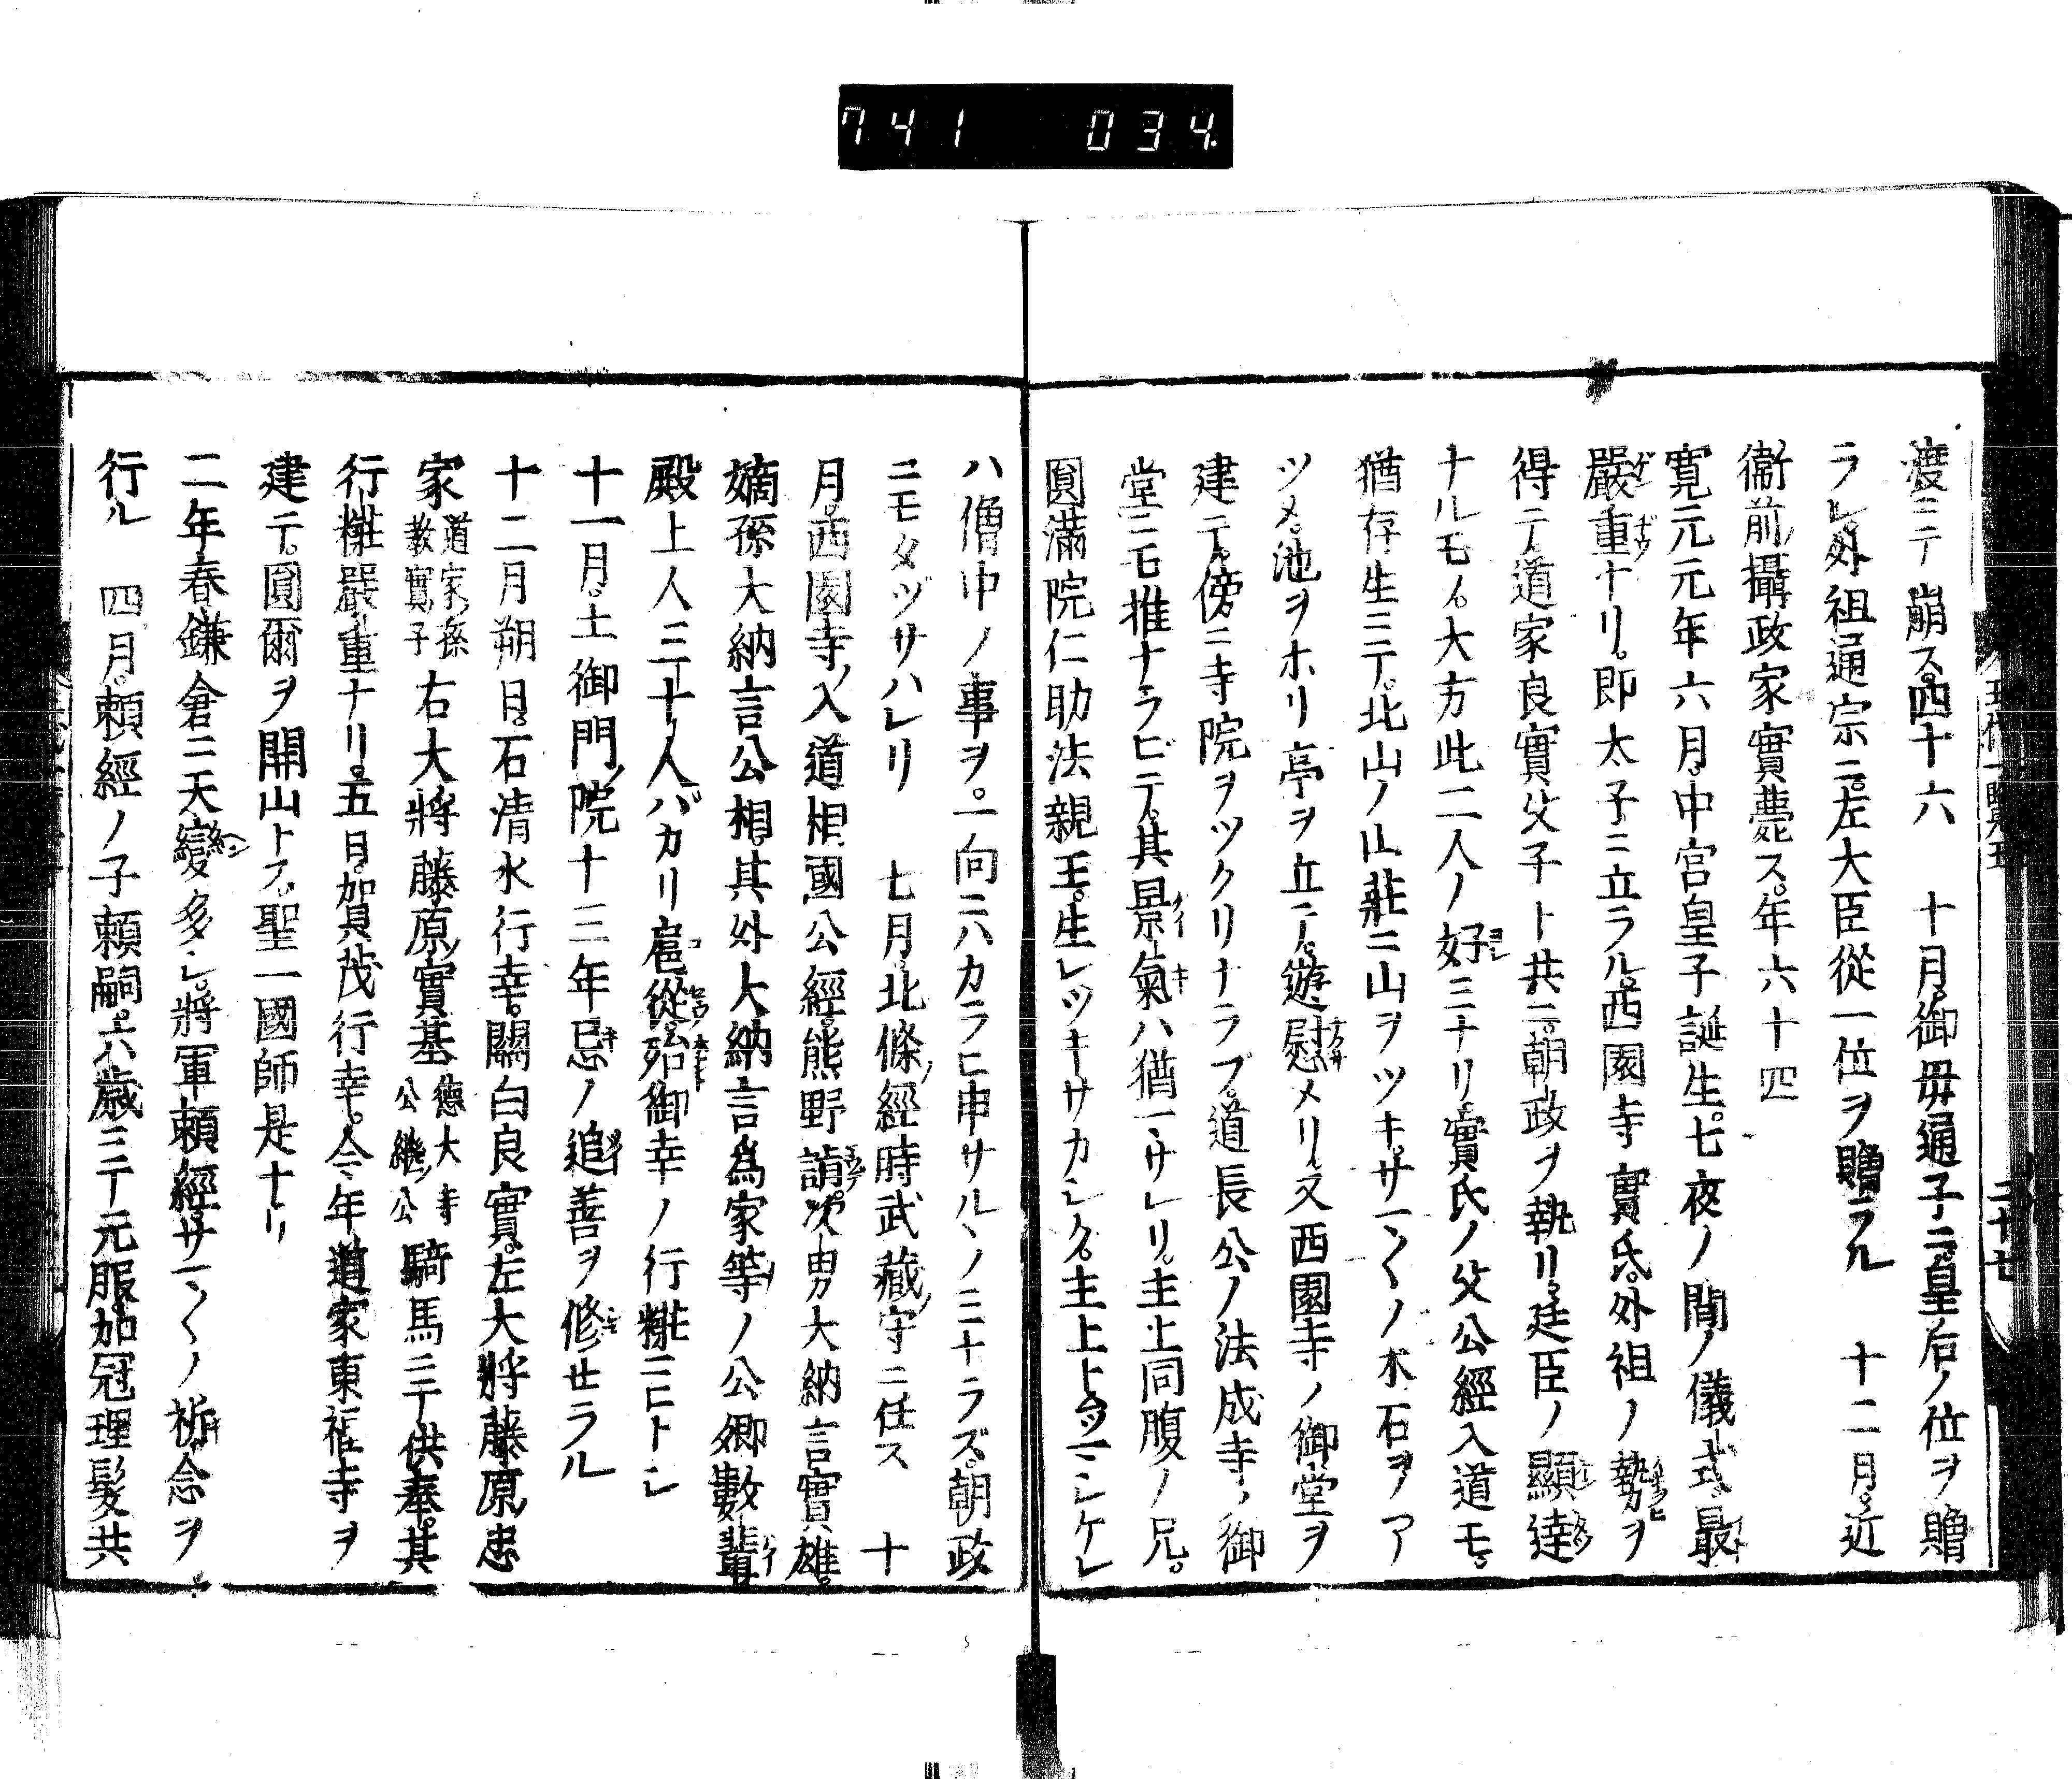 741 034
渡ニテ崩ス。四十六　十月。御母通子ニ。皇后ノ位ヲ贈
ラレ。外祖通宗ニ。左大臣從一位ヲ贈ラル　十二月。近
衞前攝政家實薨ス。年六十四
寛元元年六月。中宮皇子誕生。七夜ノ間ノ儀式。最
嚴重ナリ。即太子ニ立ラル。西園寺實氏。外祖ノ勢ヲ
得テ。道家良實父子ト共ニ。朝政ヲ執リ。廷臣ノ顯達
ナルモノ。大方此二人ノ好ミナリ。實氏ノ父公經入道モ。
猶存生ニテ。北山ノ山莊ニ山ヲツキ。サマ〱ノ木石ヲア
ツメ。池ヲホリ亭ヲ立テ。遊慰メリ。又西園寺ノ御堂ヲ
建テ。傍ニ寺院ヲツクリナラブ。道長公ノ法成寺ノ御
堂ニモ推ナラビテ。其景氣ハ猶マサレリ。主上同腹ノ兄。
圓滿院仁助法親王。生レツキサカシク。主上ト　マシケレ
ハ僧中ノ事ヲ。一向ニハカラヒ申サルヽノミナラズ。朝政
ニモタヅサハレリ　七月。北條經時武藏守ニ任ス　十
月。西園寺入道相國公經。熊野詣。次男大納言實雄。
嫡孫大納言公相。其外大納言爲家等ノ公卿數輩
殿上人三十人バカリ扈從。殆御幸ノ行粧ニヒトシ
十一月。土御門院十三年忌ノ追善ヲ修セラル
十二月朔日。石清水行幸。關白良實。左大將藤原忠
家道家孫教實子右大將藤原實基德大寺公繼公騎馬ニテ供奉。其
行粧嚴重ナリ。五日。加賀茂行幸。今年道家東福寺ヲ
建テ。圓爾ヲ開山トス。聖一國師是ナリ
二年春鎌倉ニ天變多シ。將軍賴經サマ〱ノ祈念ヲ
行ル　四月。賴經ノ子賴嗣。六歲ニテ元服。加冠理髮共